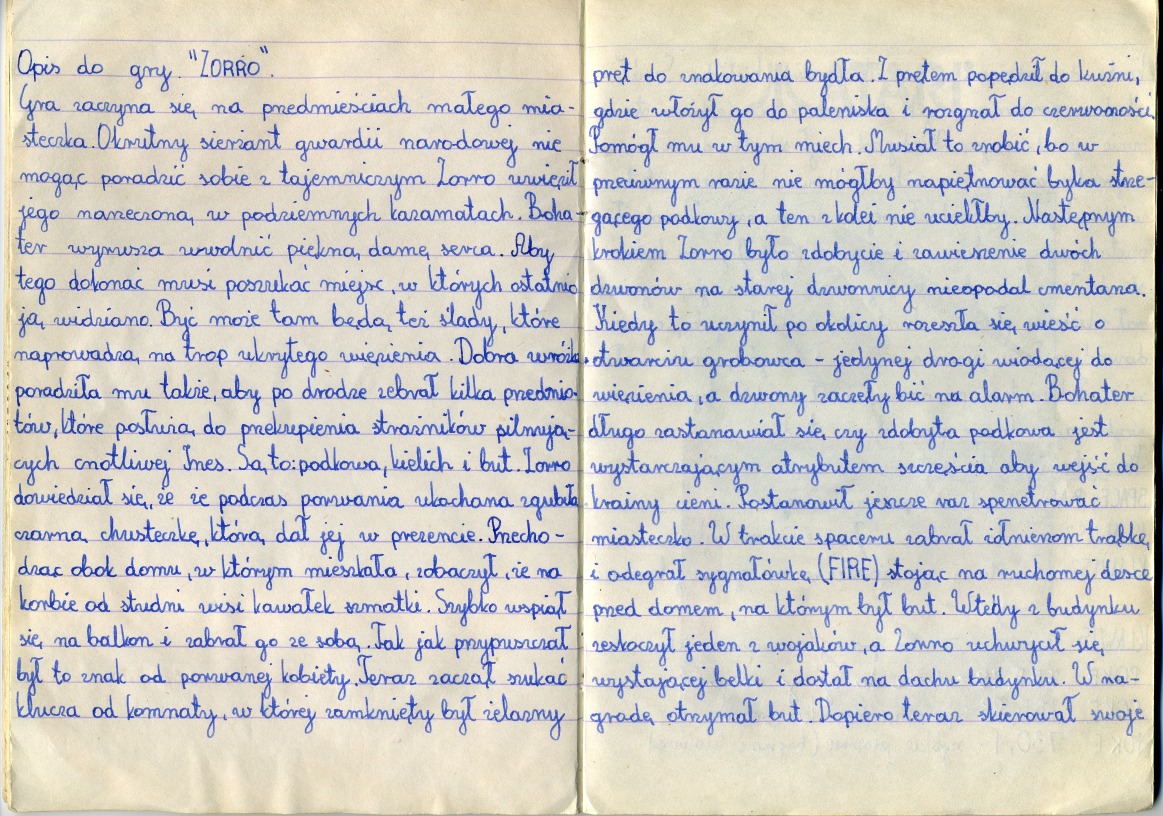 Opis do gry "ZORRO".
Gra zaczyna się na przedmieściach małego mia-
steczka. Okrutny sierżant gwardii narodowej nie
mogąc poradzić sobie z tajemniczym Zorro uwięził
jego narzeczoną w podziemnych kazamatach. Boha-
ter wyrusza uwolnić piękną damę serca. Aby
tego dokonać musi poszukać miejsc, w których ostatnio
ją widziano. Być może tam będą też ślady, które
naprowadzą na trop ukrytego więzienia. Dobra wróżka
poradziła mu także, aby po drodze zebrał kilka przedmio-
tów, które posłużą do przekupienia strażników pilnują-
cych cnotliwej Ines. Są to: podkowa, kielich i but. Zorro
dowiedział się, że że podczas porwania ukochana zgubiła
czarną chusteczkę, którą dał jej w prezencie. Przecho-
dząc obok domu, w którym mieszkała, zobaczył, że na
korbie od studni wisi kawałek szmatki. Szybko wspiął
się na balkon i zabrał go ze sobą. Tak jak przypuszczał
był to znak od porwanej kobiety. Teraz zaczął szukać
klucza od komnaty, w której zamknięty był żelazny
pręt do znakowania bydła. Z prętem popędził do kuźni,
gdzie włożył go do paleniska i rozgrzał do czerwoności.
Pomógł mu w tym miech. Musiał to zrobić, bo w
przeciwnym razie nie mógłby napiętnować byka strze-
gącego podkowy, a ten z kolei nie uciekłby. Następnym
krokiem Zorro było zdobycie i zawieszenie dwóch
dzwonów na starej dzwonnicy nieopodal cmentarza.
Kiedy to uczynił po okolicy rozeszła się wieść o
otwarciu grobowca - jedynej drogi wiodącej do
więzienia, a dzwony zaczęły bić na alarm. Bohater
długo zastanawiał się czy zdobyta podkowa jest
wystarczającym atrybutem szczęścia aby wejść do
krainy cieni. Postanowił jeszcze raz spenetrować
miasteczko. W trakcie spaceru zabrał żołnierzom trąbkę
i odegrał sygnałówkę (FIRE) stojąc na ruchomej desce
przed domem, na którym był but. Wtedy z budynku
zeskoczył jeden z wojaków, a Zorro uchwycił się
wystającej belki i dostał na dachu budynku. W na-
grodę otrzymał but. Dopiero teraz skierował swoje